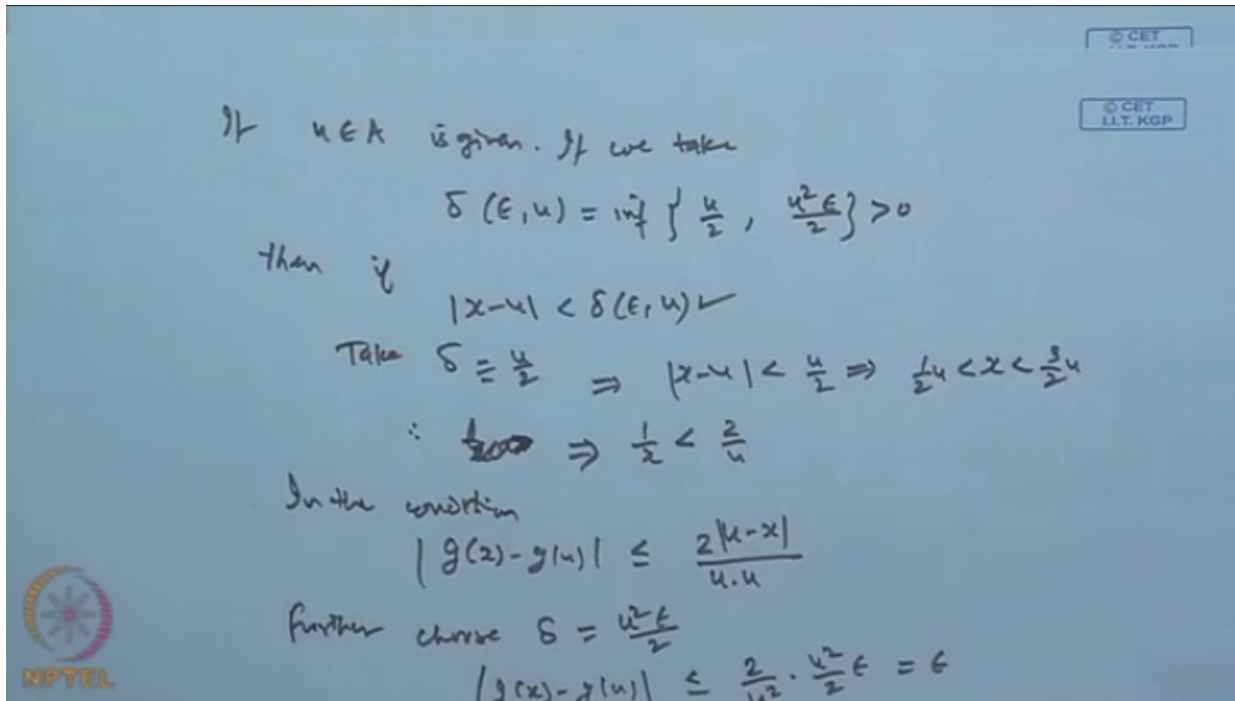 © CET
© CET
I.I.T. KGP
If u ∈ A is given. If we take
δ(ε, u) = inf { u/2 , u²ε/2 } > 0
then if
|x-u| < δ(ε, u) ✓
Take δ = u/2 ⇒ |x-u| < u/2 ⇒ 1/2 u < x < 3/2 u
∴ ⇒ 1/x < 2/u
In the condition
|g(x) - g(u)| ≤ 2|u-x| / u.u
further choose δ = u²ε/2
|g(x) - g(u)| ≤ 2/u² · u²/2 ε = ε
NPTEL